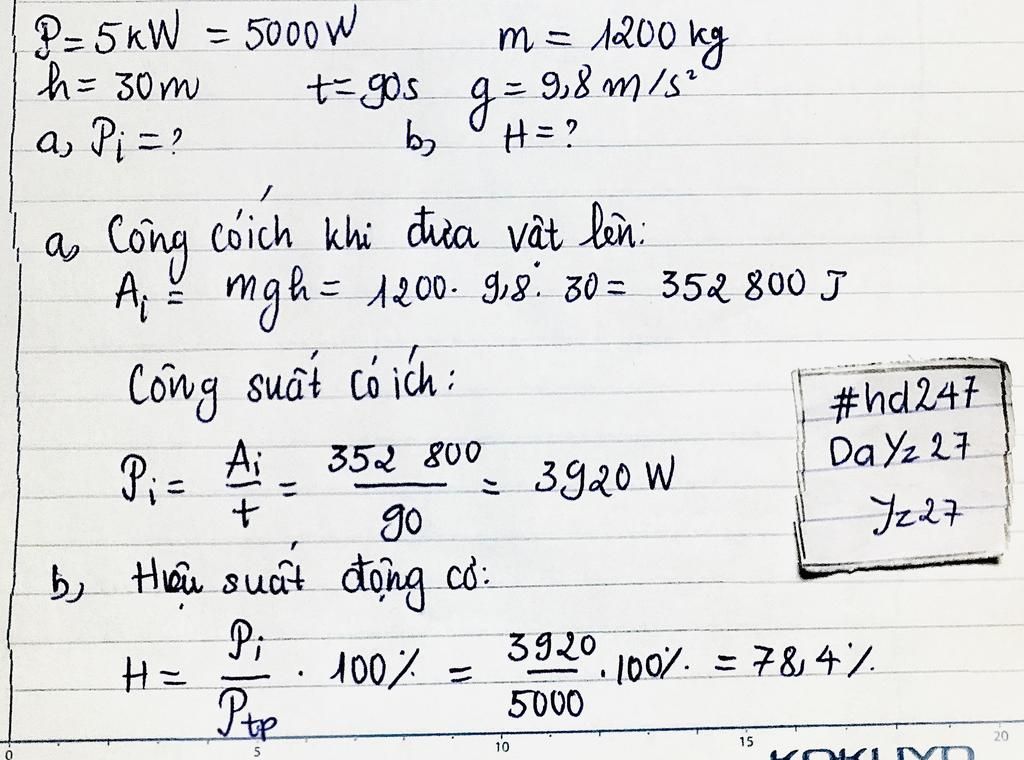 P = 5kW = 5000W m = 1200 kg
h = 30m t = 90s g = 9,8 m/s²
a, Pi = ? b, H = ?
a, Công có ích khi đưa vật lên:
Ai = mgh = 1200. 9,8. 30 = 352 800 J
Công suất có ích:
Pi = Ai/t = 352 800/90 = 3920 W
b, Hiệu suất động cơ:
H = Pi/Ptp . 100% = 3920/5000 .100% = 78,4%
#hd247
DaYz27
Yz27
0 5 10 15 20
KOKUYO